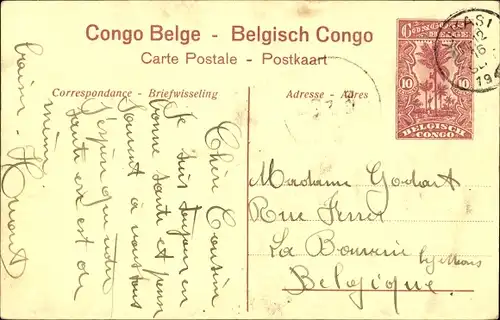 Congo Belge - Belgisch Congo
Carte Postale - Postkaart
Correspondance - Briefwisseling
Adresse - Adres
CONGO BELGE
10 10
BELGISCH CONGO
ASI
12
16
191
Chère Cousine
Je suis toujours en
bonne santé et pense
souvent à vous tous
J'espère que votre
santé est de
même
Madame Godart
Rue
La Bouverie by Mons
Belgique.